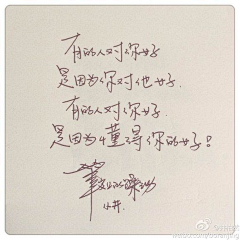 有的人对你好
是因为你对他好.
有的人对你好.
是因为懂得你的好!
小井.